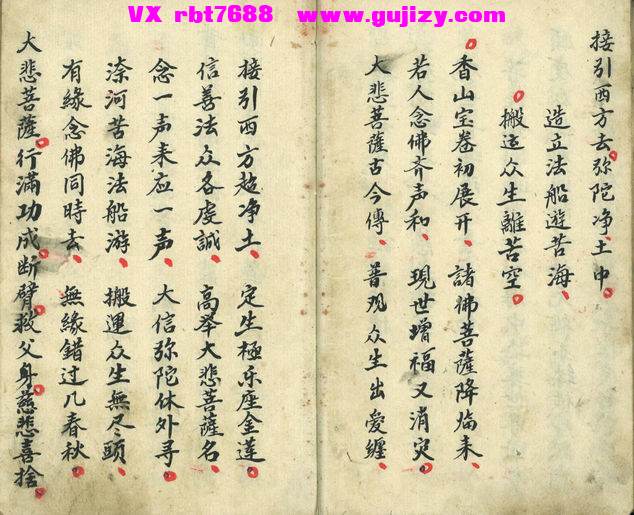 VX rbt7688 www.gujizy.com
接引西方去弥陀净土中
造立法船遊苦海
搬运众生離苦空
香山宝卷初展开 諸佛菩薩降临来
若人念佛齐声和 現世增福又消灾
大悲菩薩古今傳 普观众生出愛纏
接引西方超净土 定生極乐座金莲
信善法众各虔誠 高举大悲菩薩名
念一声来应一声 大信弥陀休外寻
渿河苦海法船游 搬運众生無尽頭
有緣念佛同時去 無緣錯过几春秋
大悲菩薩行滿功成断臂救父身慈悲喜捨